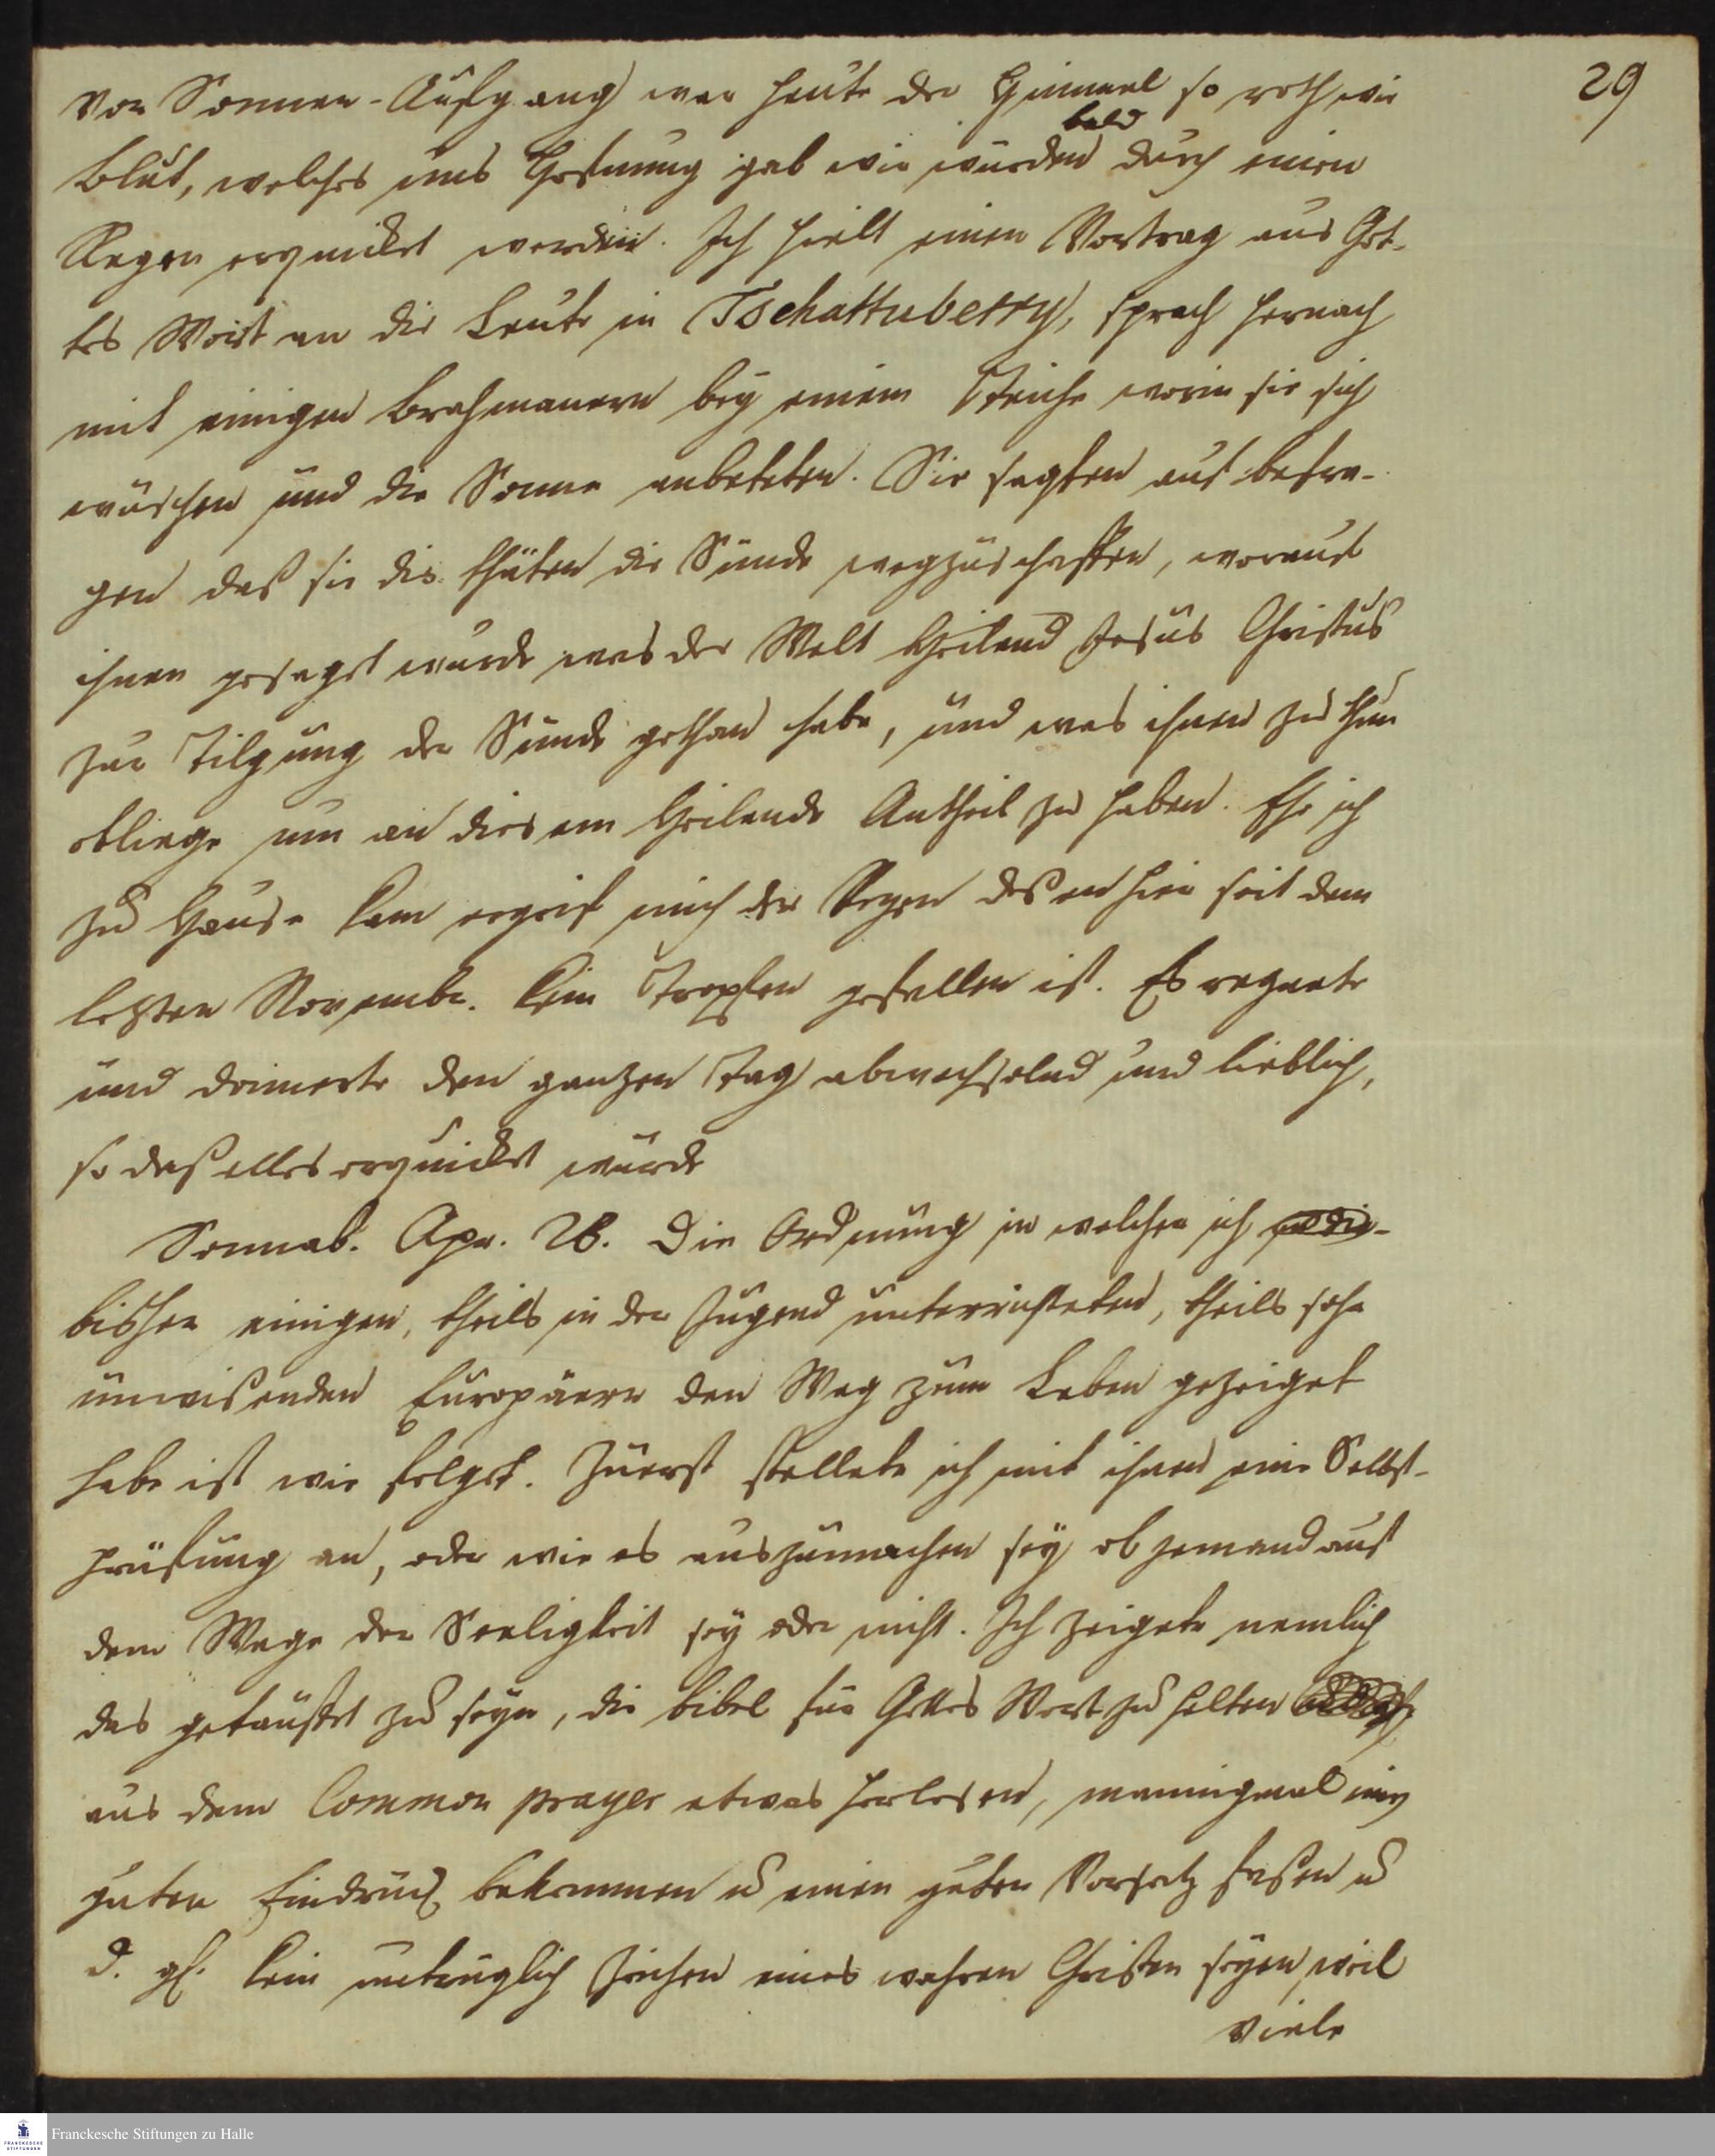 29
Vor Sonnen-Aufgang war heute der Himmel so roth wie
bald
Blut, welches uns Hofnung gab wir würden durch einen
Regen erquicket werden. Ich hielt einen Vortrag aus Got-
tes Wort an die Leute in Tschattuberry, sprach hernach
mit einigen Brahmanern bey einem Teiche worin sie sich
wuschen und die Sonne anbeteten. Sie sagten auf befra-
gen daß sie dis thäten die Sünde wegzuschaffen, worauf
ihnen gesaget wurde was der Welt Heiland Jesus Christus
zur Tilgung der Sünde gethan habe, und was ihnen zu thun
obliege um an diesem Heilande Antheil zu haben. Ehe ich
zu Hause kam ergrif mich der Regen deßen hier seit dem
letzten Novembr. kein Tropfen gefallen ist. Es regnete
und donnerte den ganzen Tag abwechselnd und lieblich,
so daß alles erquicket wurde
Sonnab. Apr. 28. Die Ordnung in welcher ich
bisher einigen, theils in der Jugend unterrichteten, theils sehr
unwißenden Europäern den Weg zum Leben gezeiget
habe ist wie folget. Zuerst stellete ich mit ihnen eine Selbst-
prüfung an, oder wie es auszumachen sey ob jemand auf
dem Wege der Seeligkeit sey oder nicht. Ich zeigete nemlich
das getauffet zu seyn, die Bibel für Gottes Wort zu halten
aus dem Common prayer etwas herlesen, manningmal einen
guten Eindruck bekommen u einen guten Vorsatz faßen u
d. gl. kein untrüglich Zeichen eines wahren Christen seyen, weil
viele
Franckesche Stiftungen zu Halle